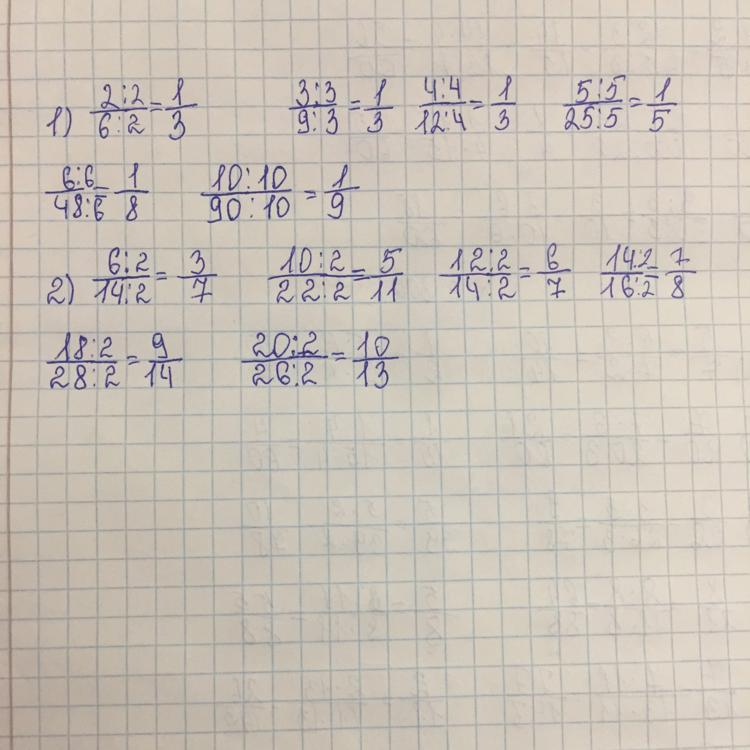 1) 2:2/6:2 = 1/3   3:3/9:3 = 1/3   4:4/12:4 = 1/3   5:5/25:5 = 1/5
6:6/48:6 = 1/8   10:10/90:10 = 1/9
2) 6:2/14:2 = 3/7   10:2/22:2 = 5/11   12:2/14:2 = 6/7   14:2/16:2 = 7/8
18:2/28:2 = 9/14   20:2/26:2 = 10/13